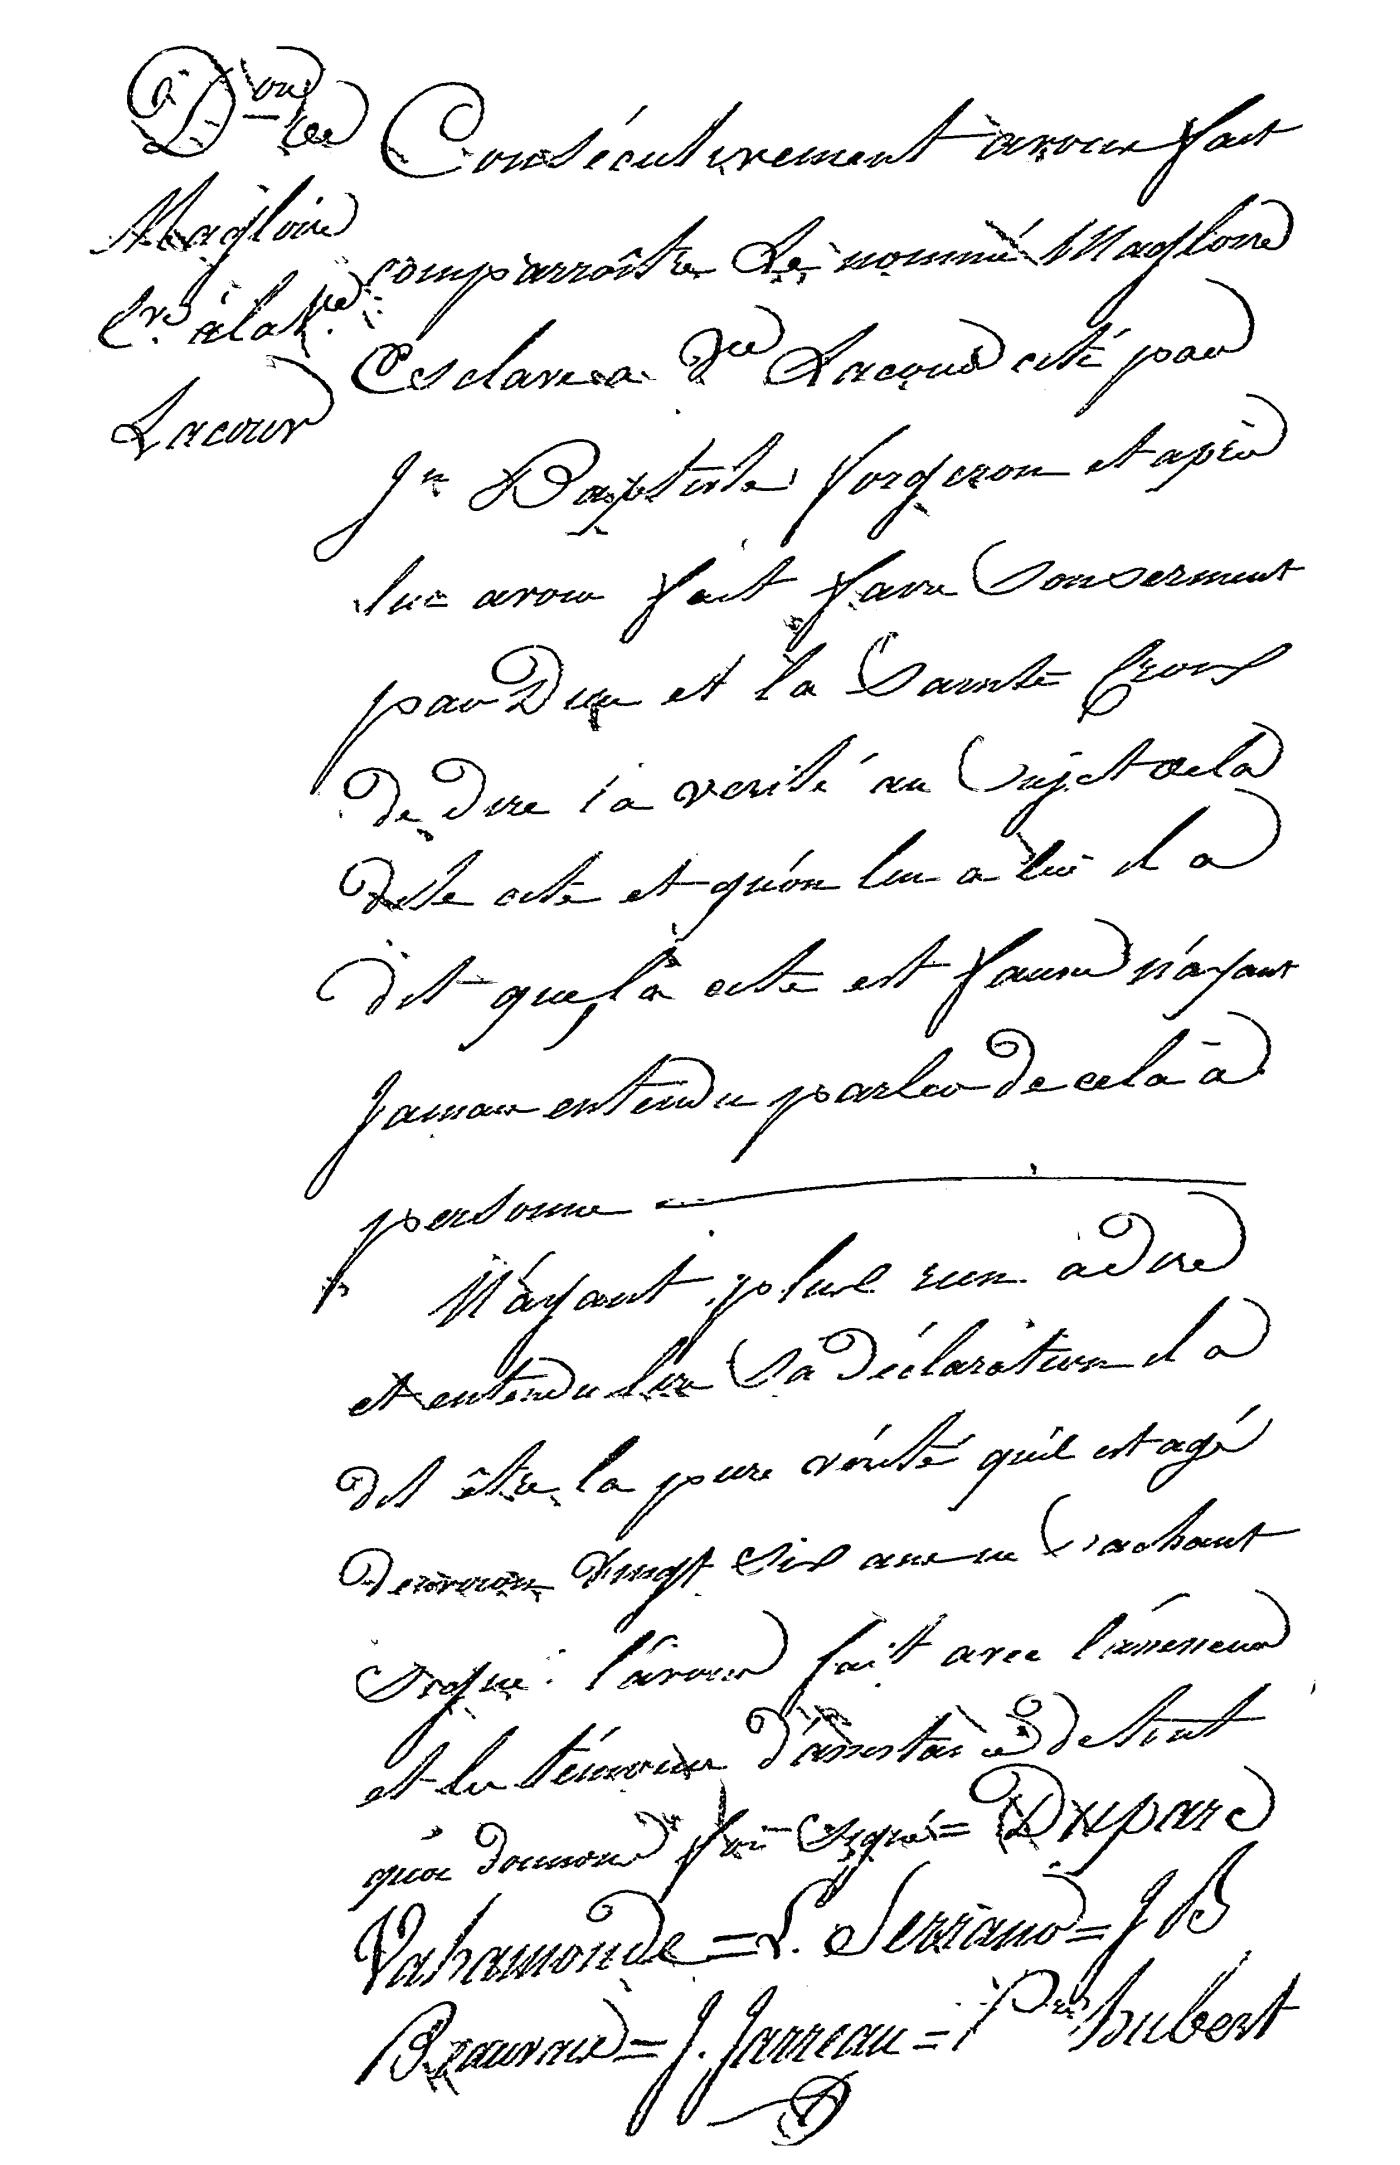 D.on de
Magloire
E.ve à la V.ve
Lacour
Consécutivement avons fait
comparroître Le nommé Magloire
Esclave a V.ve Lacour cité par
J.n Baptiste forgeron et après
lui avoir fait faire Son serment
par Dieu et la Sainte Croix
De Dire la verité au Sujet de la
dite cite et qu'on lui a lue il a
dit que la cite est fausse n'ayant
Jamais entendu parler de cela à
personne
N'ayant plus rien à Dire
et entendu lire Sa Déclaration il a
dit être la pure vérité qu'il est agé
D'environ Vingt Six ans ne Sachant
Signer l'avons fait avec l'ameneur
et les témoins d'assistance de tout
quoi donnons foi Signé = Duparc
Vahamonde = L. Serrano = J B
Beauvais = J. Jarreau = P.re hubert